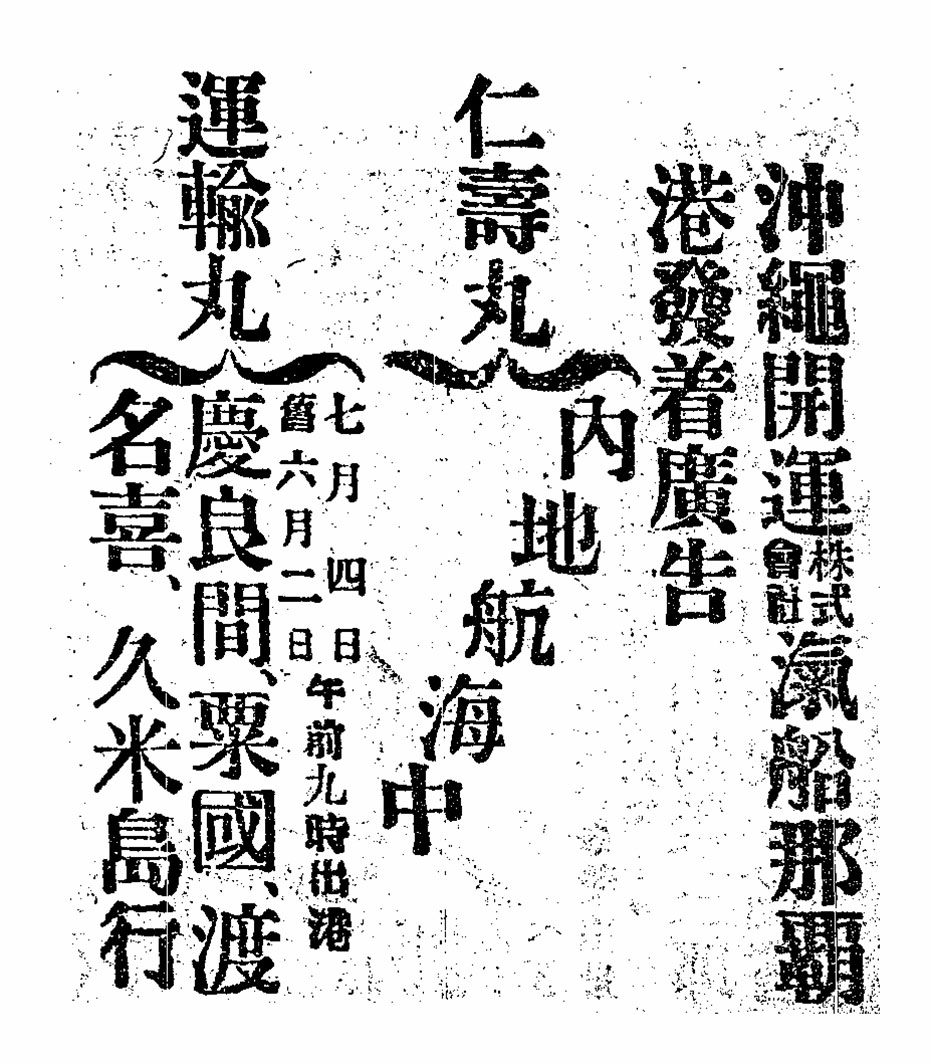 沖繩開運株式會社滊船那覇
港發着廣告
仁壽丸
內地航海中
運輸丸
七月四日
舊六月二日
午前九時出港
慶良間、粟國、渡
名喜、久米島行